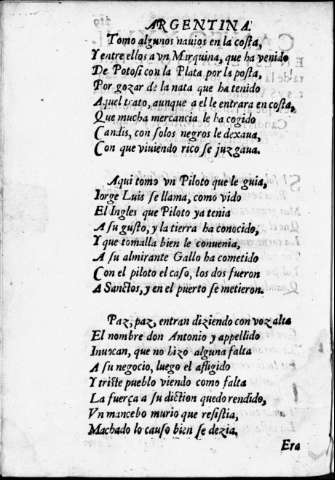 ARGENTINA.
Tomo algunos nauios en la costa,
Y entre ellos a vn Mirquina, que ha venido
De Potosi con la Plata por la posta,
Por gozar de la nata que ha tenido
Aquel trato, aunque a elle entrara en costa,
Que mucha mercancia le ha cogido
Candis, con solos negros le dexaua,
Con que viuiendo rico se juzgaua.
Aqui tomo vn Piloto que le guia,
Iorge Luis se llama, como vido
El Ingles que Piloto ya tenia
A su gusto, y la tierra ha conocido,
Y que tomalla bien le conuenia,
A su almirante Gallo ha cometido
Con el piloto el caso, los dos fueron
A Sanctos, y en el puerto se metieron.
Paz, paz, entran diziendo con voz alta
El nombre don Antonio y appellido
Inuocan, que no hizo alguna falta
A su negocio, luego el afligido
Y triste pueblo viendo como falta
La fuerça a su diction quedo rendido,
Vn mancebo murio que resistia,
Machado lo causo bien se dezia,
Era